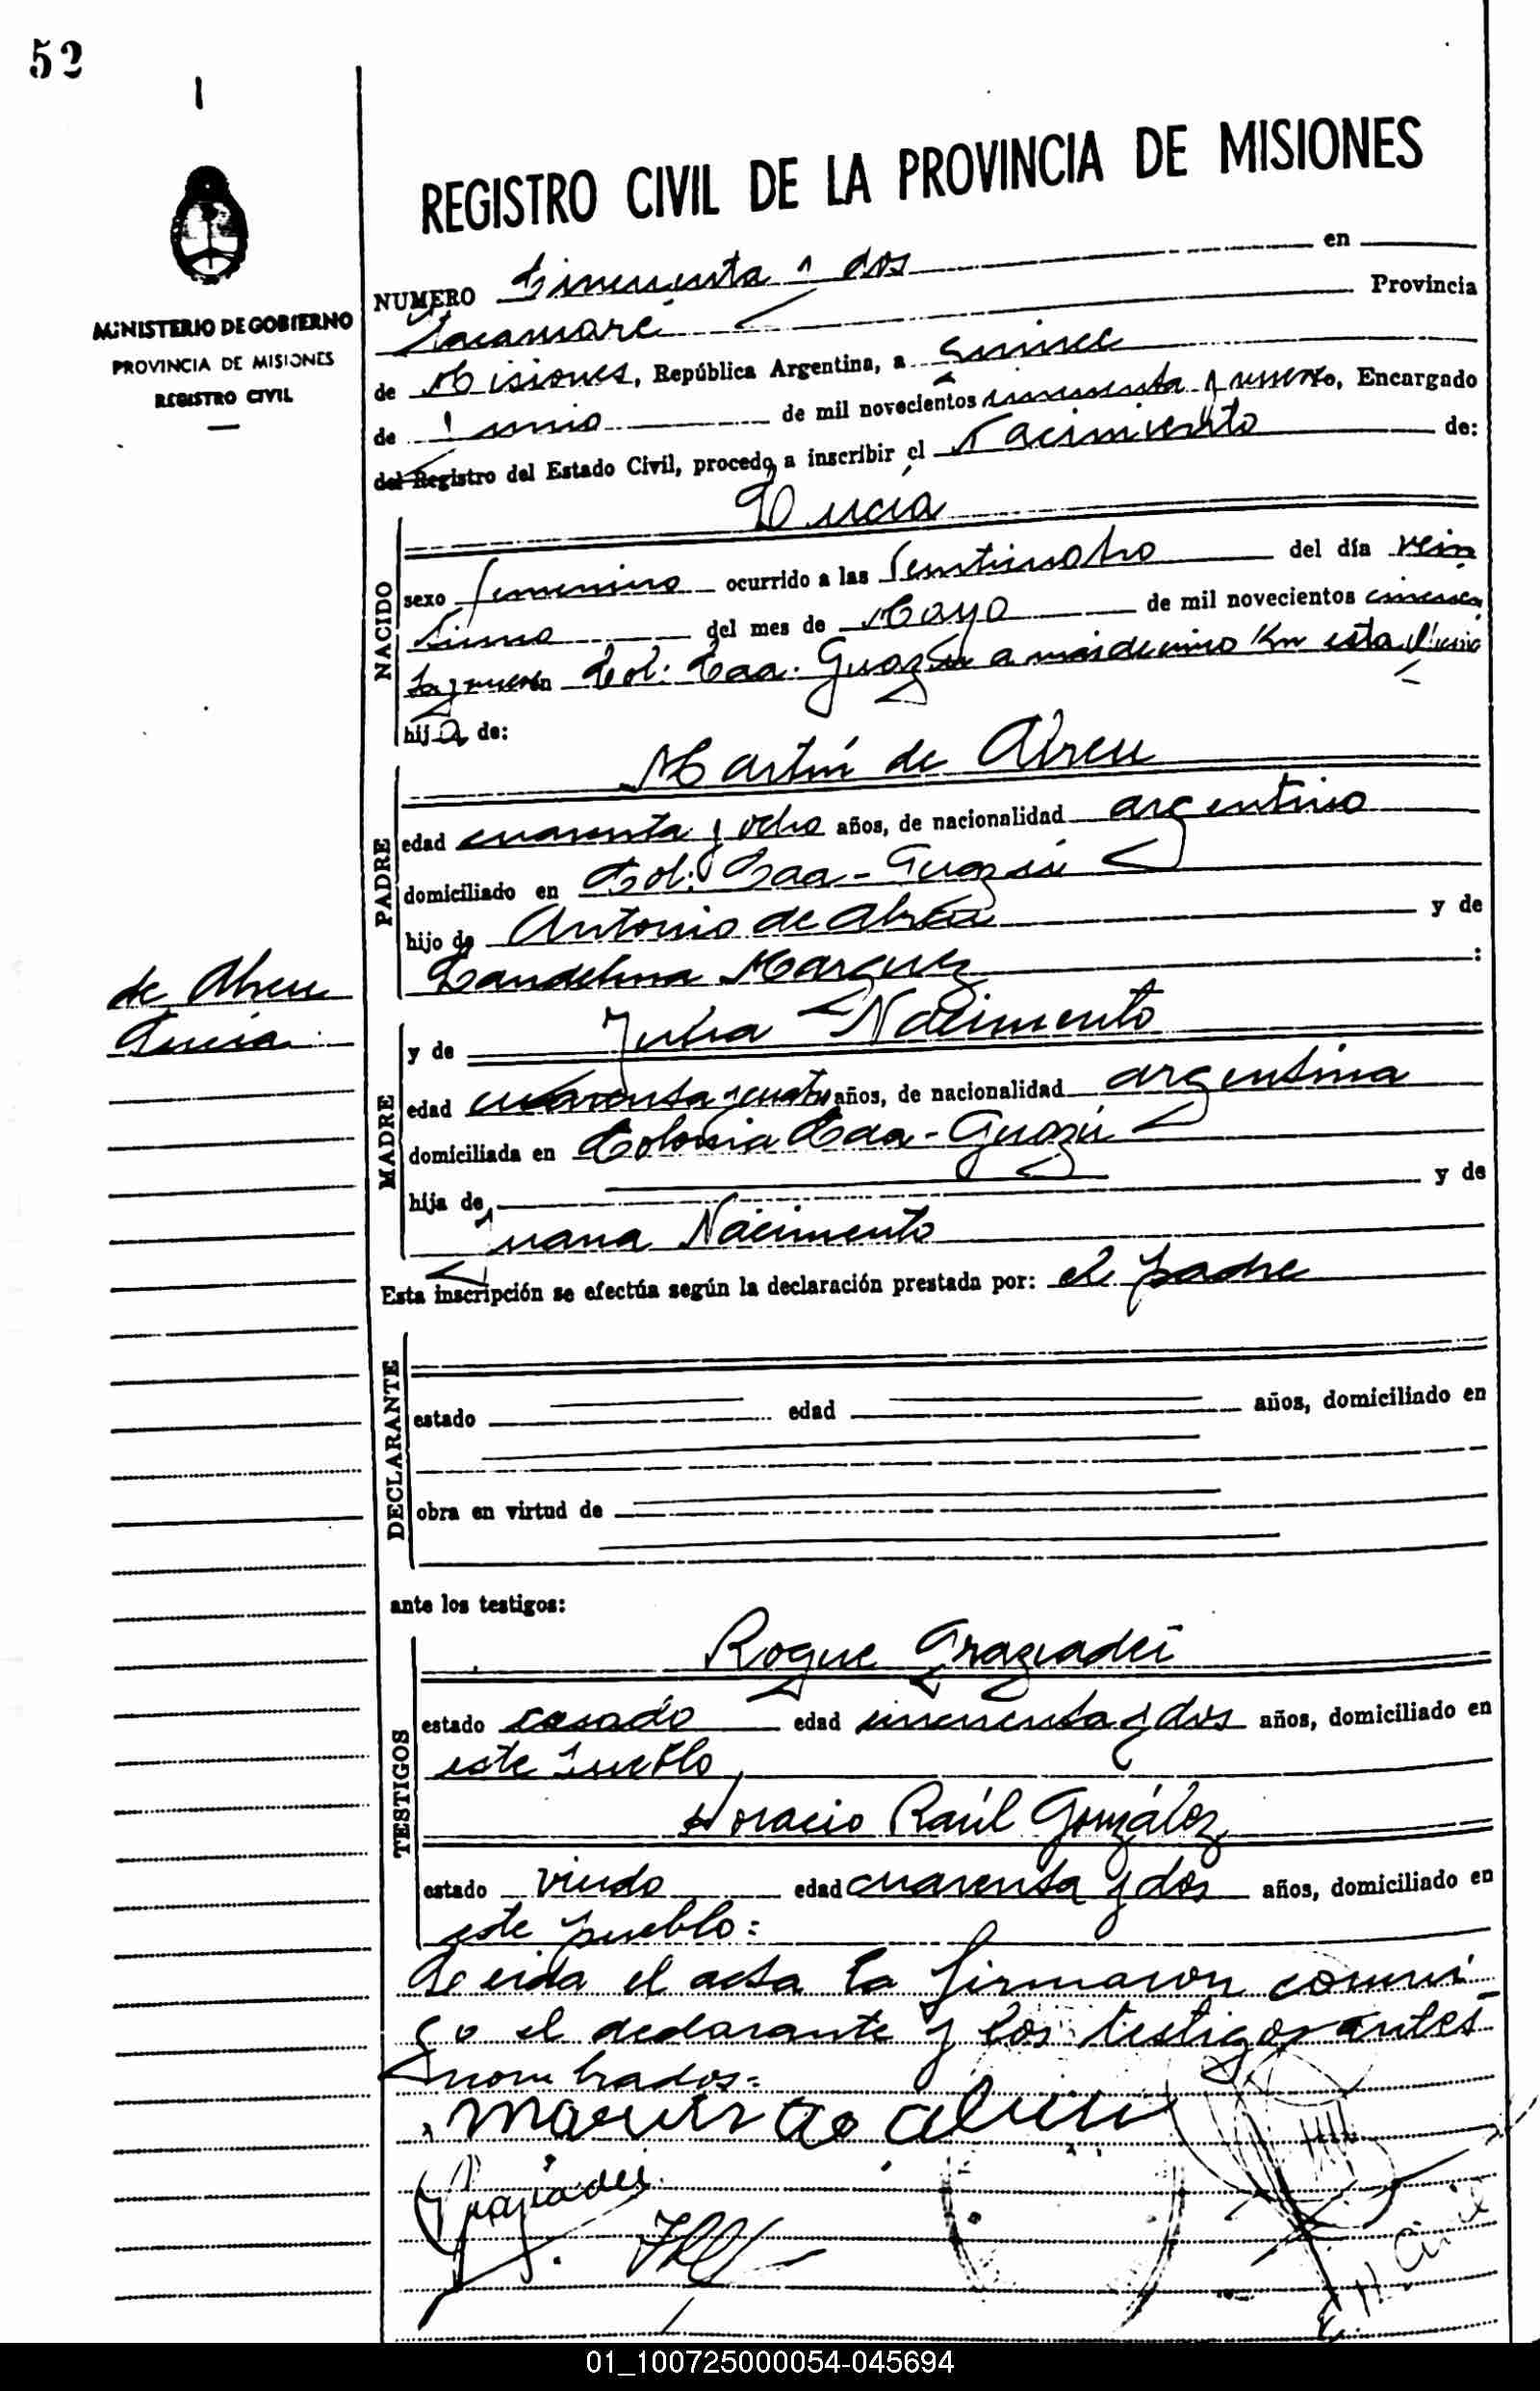 52
1
MINISTERIO DE GOBIERNO
PROVINCIA DE MISIONES
REGISTRO CIVIL
REGISTRO CIVIL DE LA PROVINCIA DE MISIONES
NUMERO Cincuenta y dos en
Tacuaré Provincia
de Misiones, República Argentina, a Quince
de Junio de mil novecientos cincuenta y nueve, Encargado
del Registro del Estado Civil, procedo a inscribir el Nacimiento de:
NACIDO
Lucía
sexo femenino ocurrido a las veinticuatro del día vein
tiuno del mes de Mayo de mil novecientos cincuen
ta y nueve en Col: Caa-Guazú a más de cinco Km esta oficina
hija de:
PADRE
Martín de Abreu
edad cuarenta y ocho años, de nacionalidad argentino
domiciliado en Col: Caa-Guazú
hijo de Antonio de Abreu y de
Candelina Marquez :
de Abreu
Lucía
MADRE
y de Julia Nacimento
edad cuarenta y cuatro años, de nacionalidad argentina
domiciliada en Colonia Caa-Guazú
hija de y de
Juana Nacimento
Esta inscripción se efectúa según la declaración prestada por: el padre
DECLARANTE
estado edad años, domiciliado en
obra en virtud de
ante los testigos:
TESTIGOS
Roque Graziadei
estado casado edad cincuenta y dos años, domiciliado en
este pueblo
Horacio Raúl González
estado viudo edad cuarenta y dos años, domiciliado en
este pueblo:
Leída el acta la firmaron conmi
go el declarante y los testigos antes
nombrados:
martin de abreu
Graziadei
01_100725000054-045694